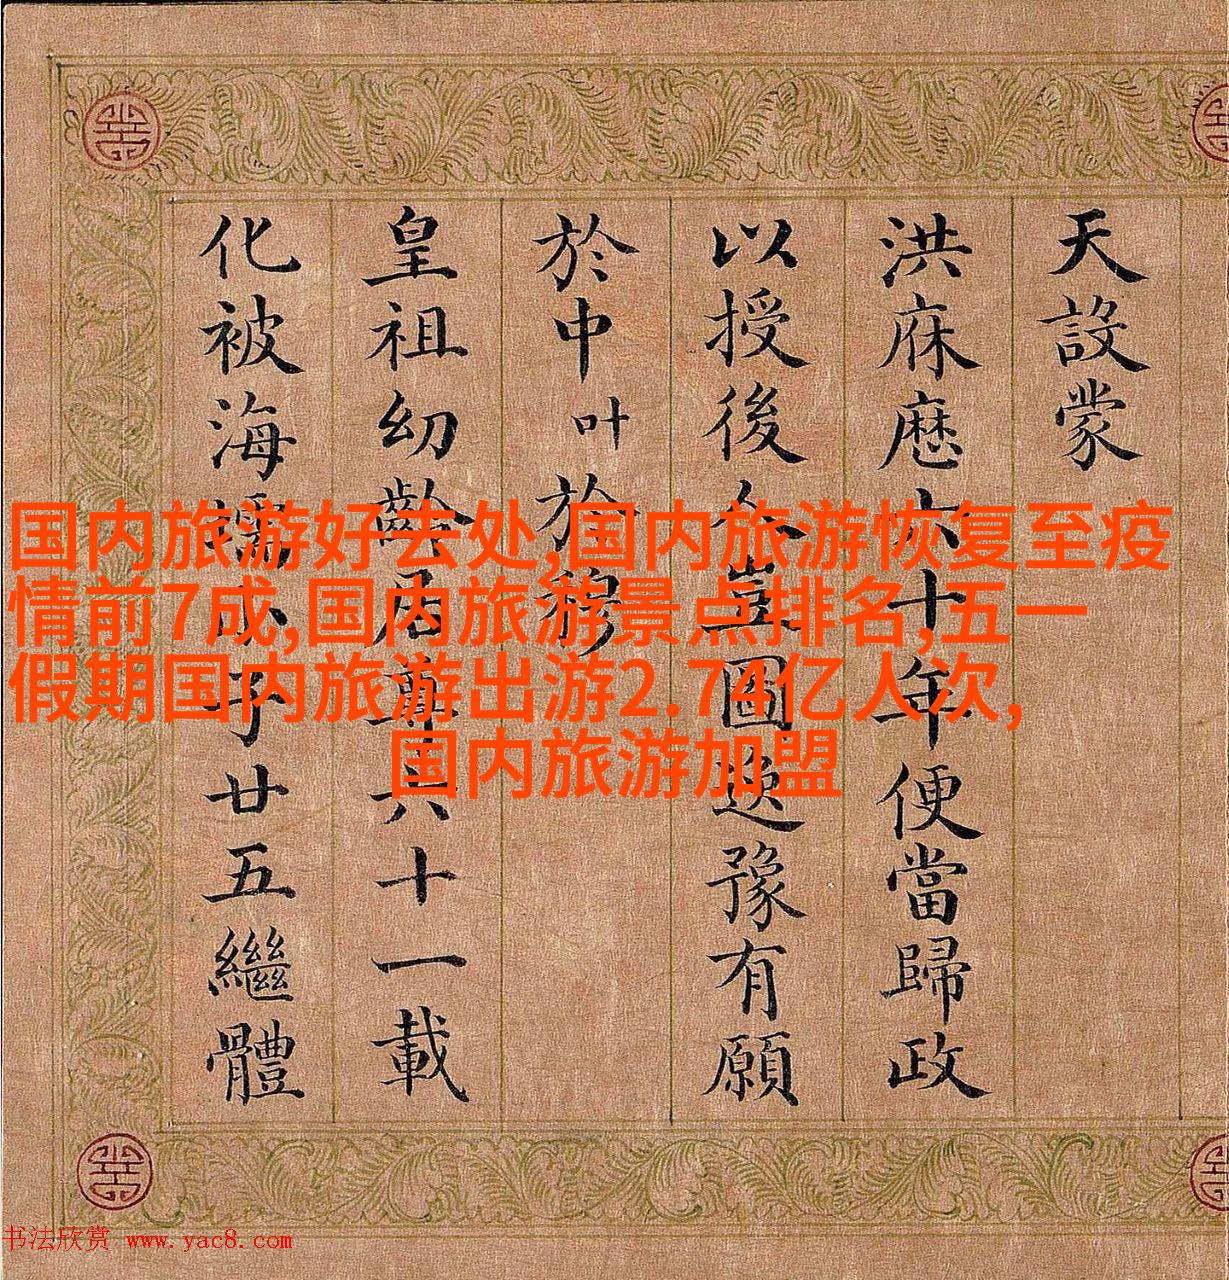 天設蒙
洪庥歷六十年便當歸政
以授後人豈圖逸豫有願
於中叶於穆
皇祖幼齡居尊六十一載
化被海壖以予廿五繼體
国内旅游好去处,国内旅游恢复至疫
情前7成,国内旅游景点排名,五一
假期国内旅游出游2.74亿人次,
国内旅游加盟
书法欣赏 www.yac8.com